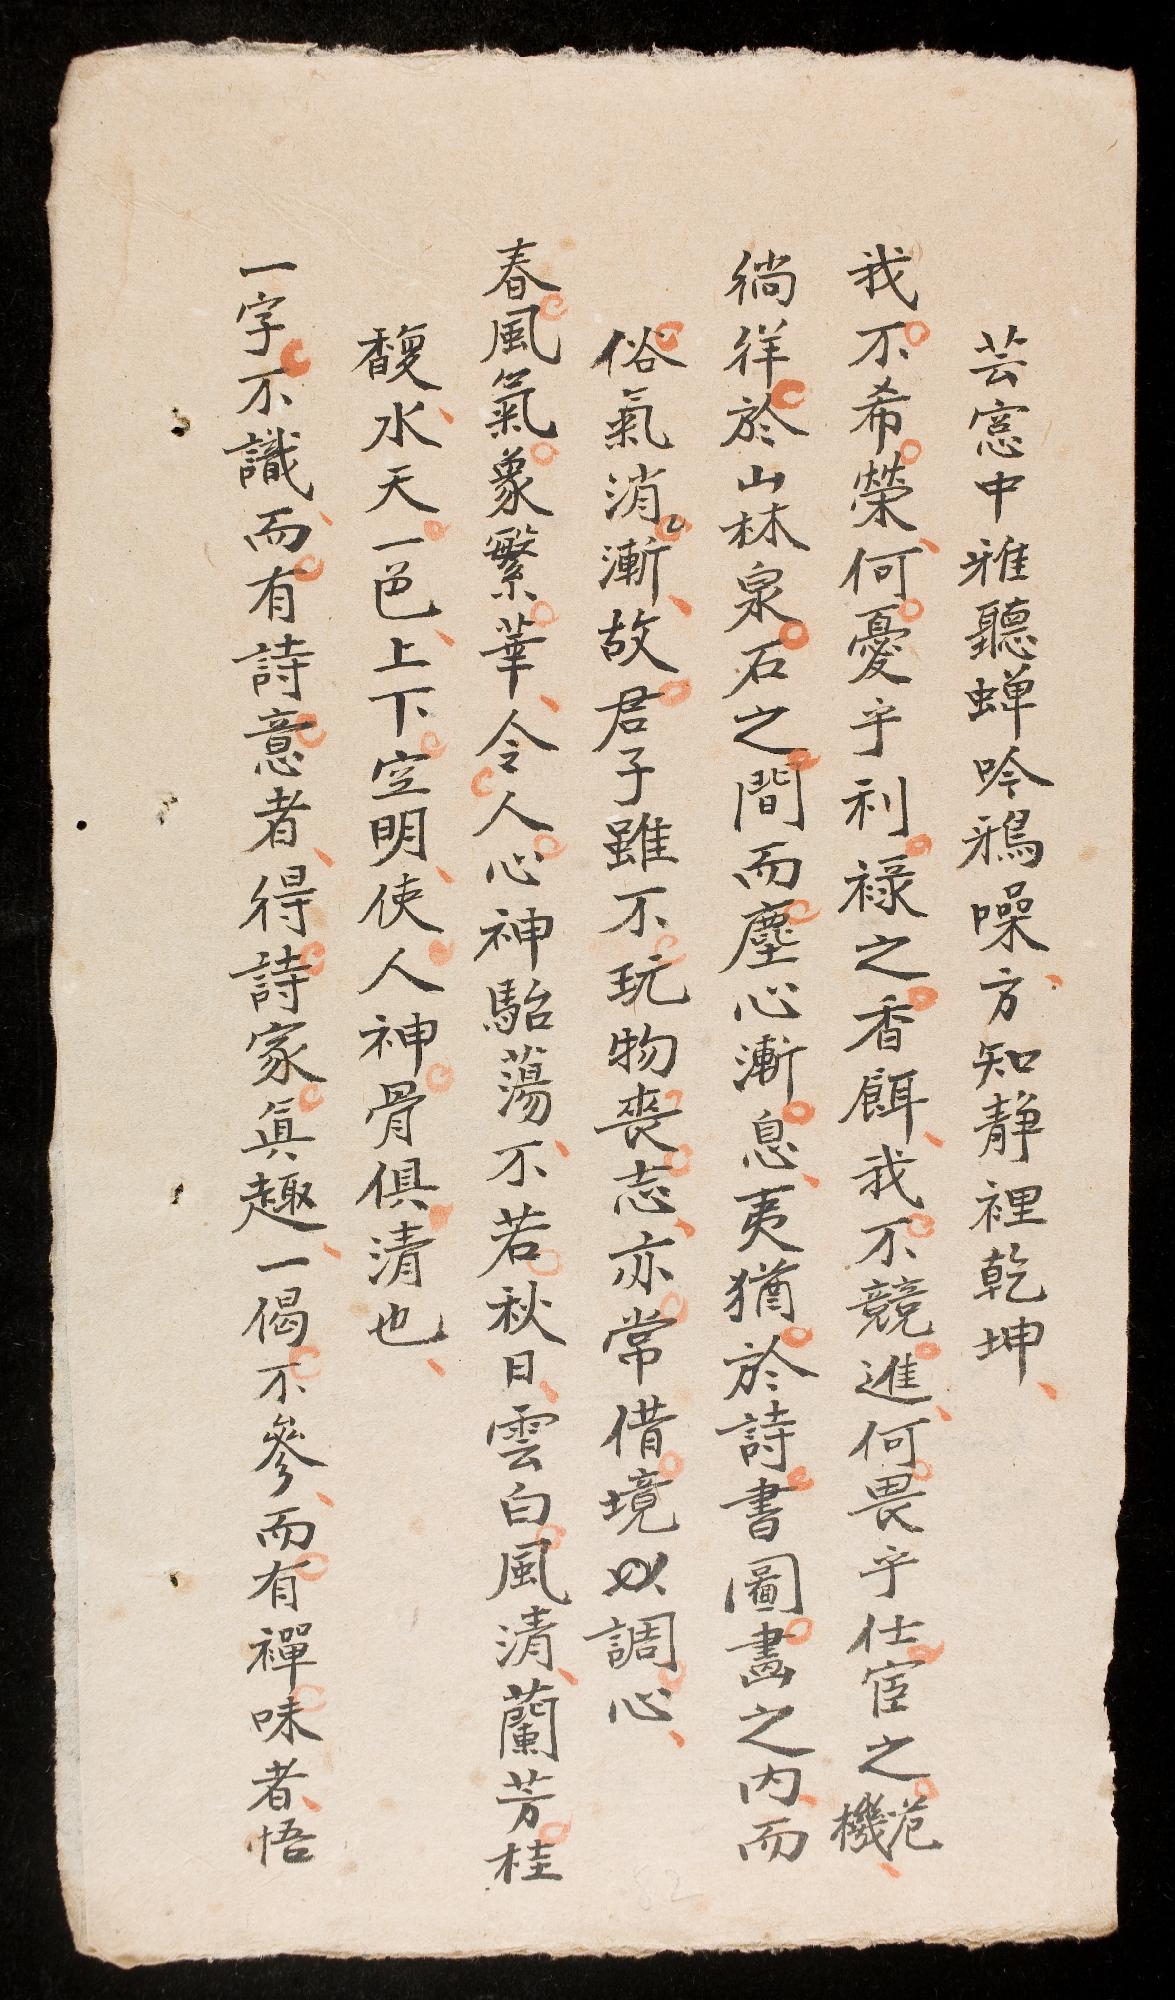 芸窓中雅聽蝉吟鴉噪方知靜裡乾坤
我不希榮何憂乎利祿之香餌我不競進何畏乎仕宦之危機
徜徉於山林泉石之間而塵心漸息夷猶於詩書圖畫之內而
俗氣消漸故君子雖不玩物喪志亦常借境以調心
春風氣象繁華令人心神駘蕩不若秋日雲白風清蘭芳桂
馥水天一色上下空明使人神骨俱清也
一字不識而有詩意者得詩家眞趣一偈不參而有禪味者悟
82